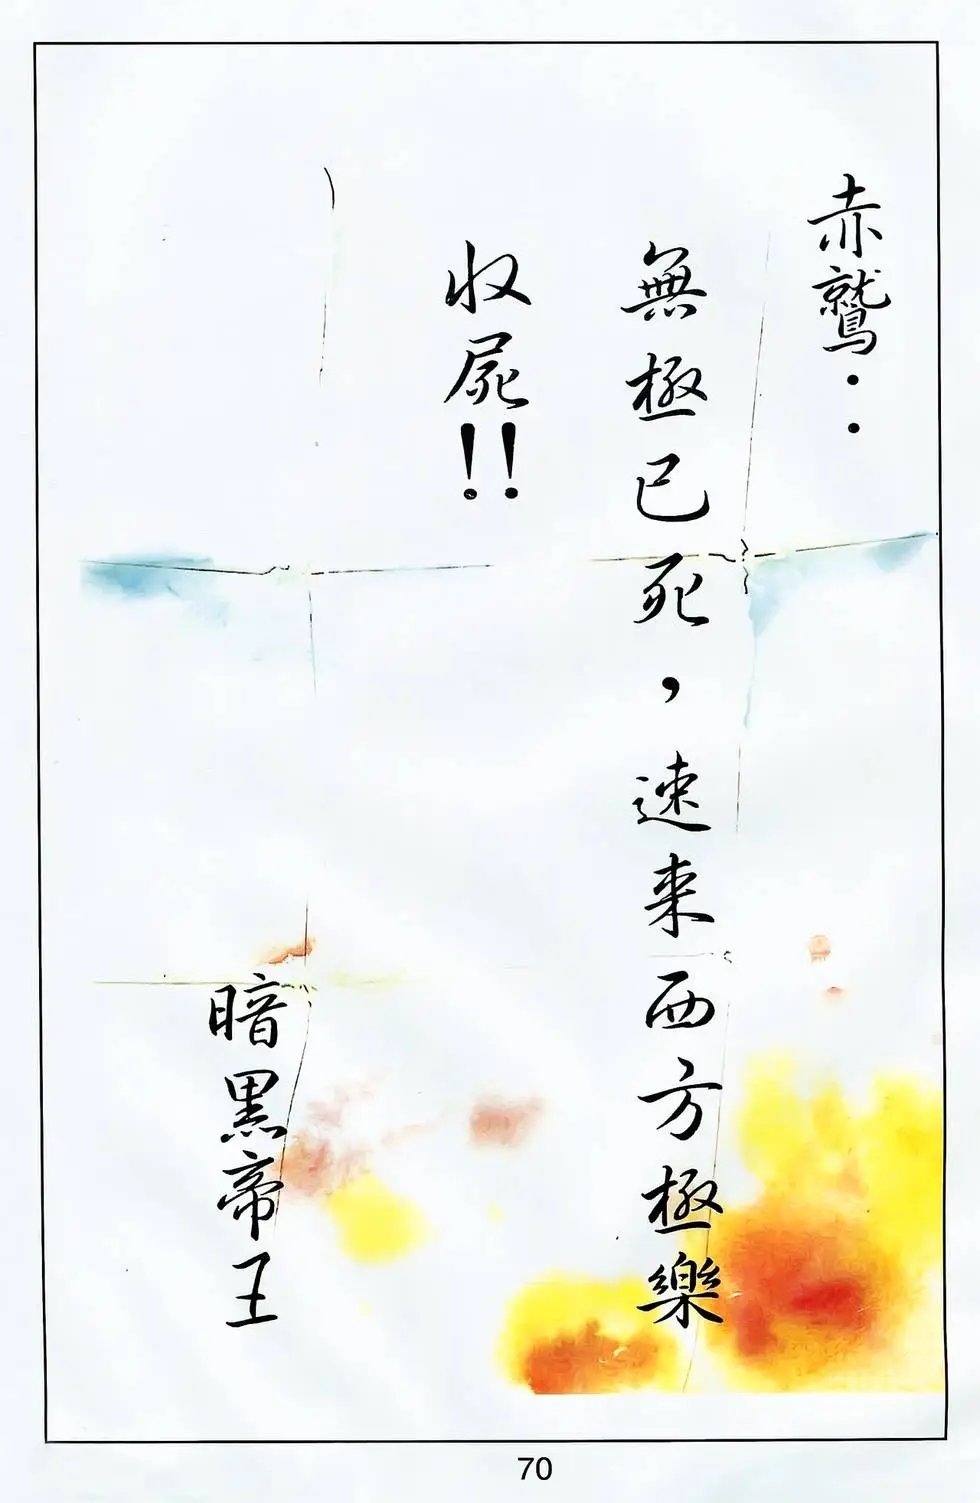 赤鷲：
無極已死，速来西方極樂
收屍!!
暗黑帝王
70